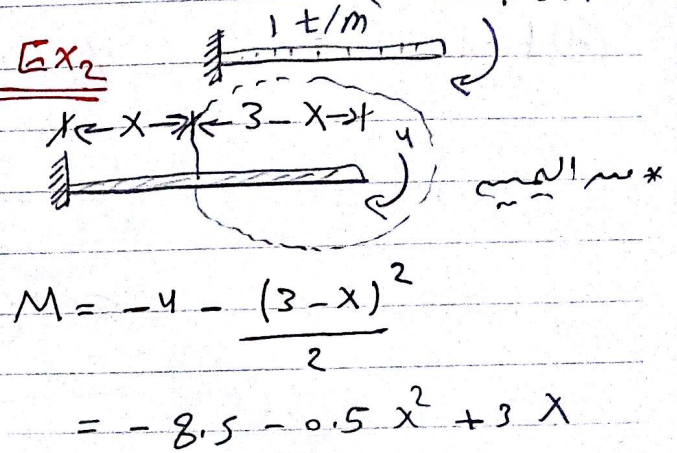 1 t/m
Ex2
x 3 - x
4
* من اليمين
M = -4 - (3-x)²/2
= -8.5 - 0.5 x² + 3 x